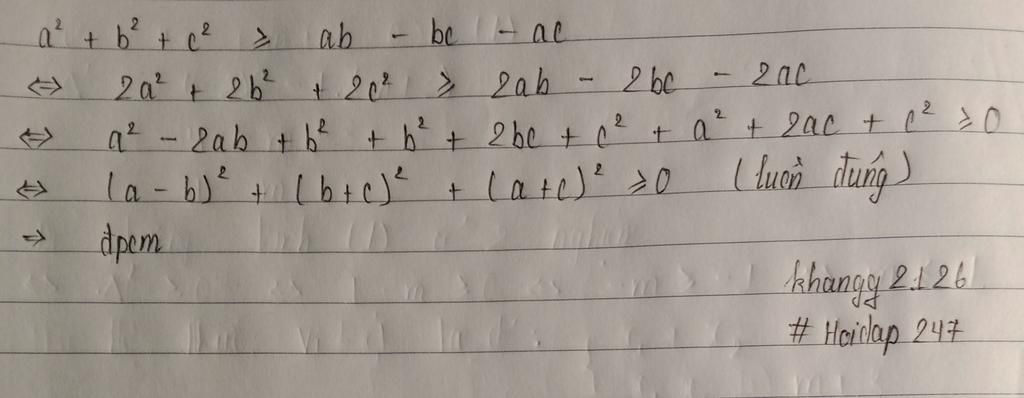 a² + b² + c² ⩾ ab - bc - ac
⇔ 2a² + 2b² + 2c² ⩾ 2ab - 2bc - 2ac
⇔ a² - 2ab + b² + b² + 2bc + c² + a² + 2ac + c² ⩾ 0
⇔ (a - b)² + (b + c)² + (a + c)² ⩾ 0 (luôn đúng)
⇒ đpcm
khangg 2126
# Hoidap 247